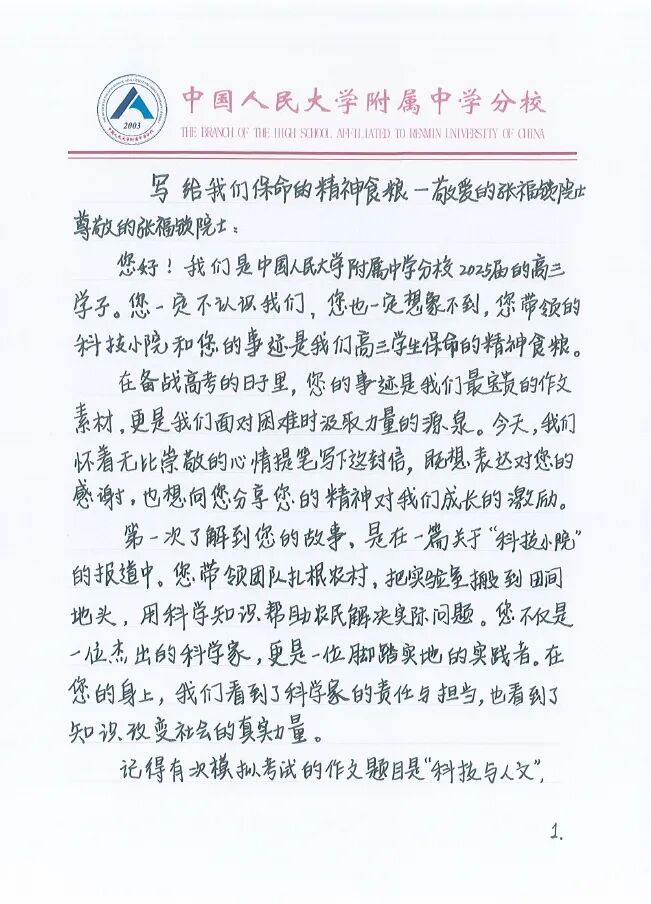 中国人民大学附属中学分校
THE BRANCH OF THE HIGH SCHOOL AFFILIATED TO RENMIN UNIVERSITY OF CHINA
2003
写给我们保命的精神食粮—敬爱的张福锁院士
尊敬的张福锁院士：
您好！我们是中国人民大学附属中学分校2025届的高三
学子。您一定不认识我们，您也一定想象不到，您带领的
科技小院和您的事迹是我们高三学生保命的精神食粮。
在备战高考的日子里，您的事迹是我们最宝贵的作文
素材，更是我们面对困难时汲取力量的源泉。今天，我们
怀着无比崇敬的心情提笔写下这封信，既想表达对您的
感谢，也想向您分享您的精神对我们成长的激励。
第一次了解到您的故事，是在一篇关于“科技小院”
的报道中。您带领团队扎根农村，把实验室搬到田间
地头，用科学知识帮助农民解决实际问题。您不仅是
一位杰出的科学家，更是一位脚踏实地的实践者。在
您的身上，我们看到了科学家的责任与担当，也看到了
知识改变社会的真实力量。
记得有次模拟考试的作文题目是“科技与人文”，
1.